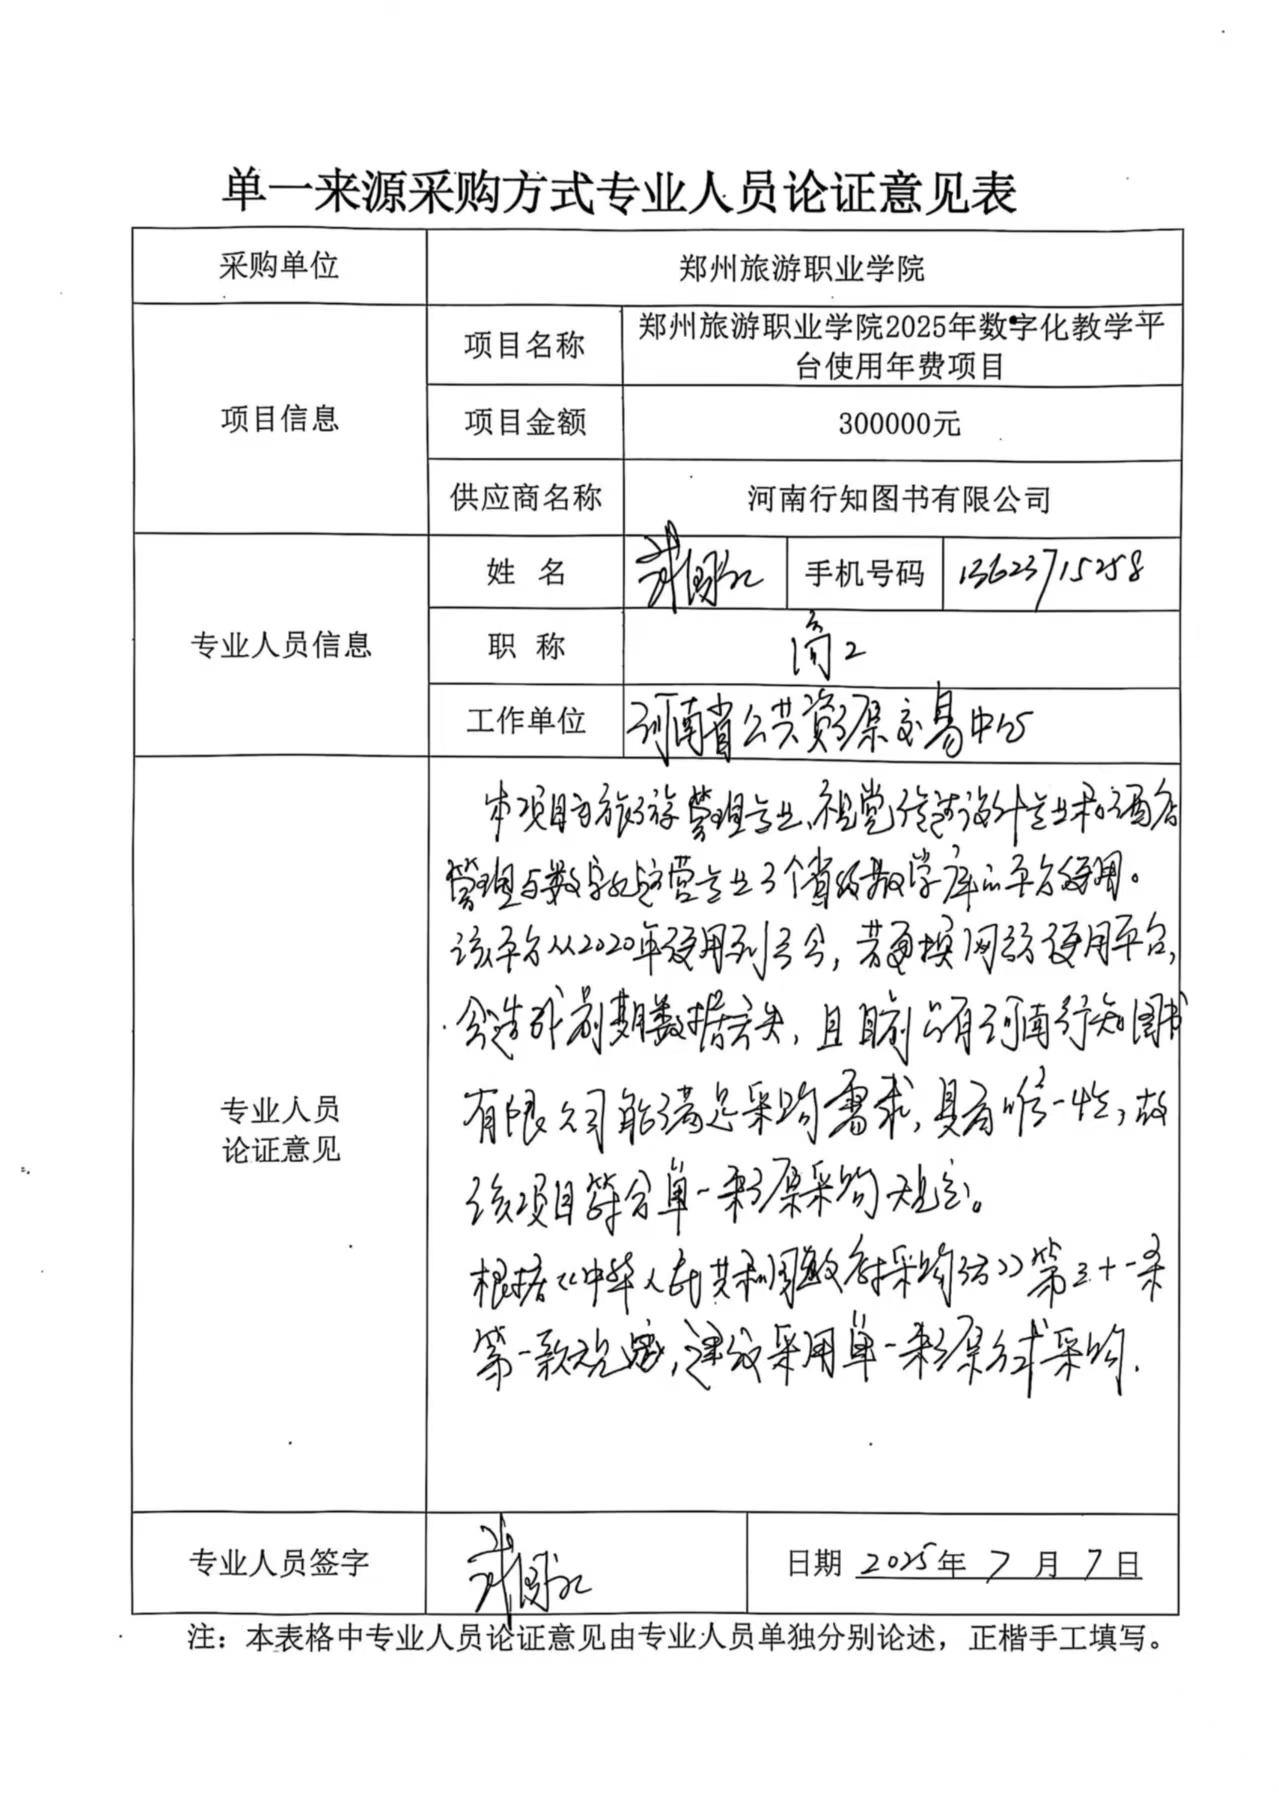 单一来源采购方式专业人员论证意见表
采购单位 郑州旅游职业学院
项目信息
项目名称 郑州旅游职业学院2025年数字化教学平
台使用年费项目
项目金额 300000元
供应商名称 河南行知图书有限公司
专业人员信息
姓 名 手机号码 13623715258
职 称 高工
工作单位 河南省公共资源交易中心
专业人员
论证意见
本项目为旅游管理专业、视觉传播设计专业和酒店
管理与数字化运营专业3个省级教学库的平台使用。
该平台从2020年使用到至今，若更换网络使用平台，
会造成前期数据丢失，且目前只有河南行知图书
有限公司能满足采购需求，具有唯一性，故
该项目符合单一来源采购规定。
根据《中华人民共和国政府采购法》第三十一条
第一款规定，建议采用单一来源方式采购.
专业人员签字 日期 2025年 7 月 7日
注：本表格中专业人员论证意见由专业人员单独分别论述，正楷手工填写。